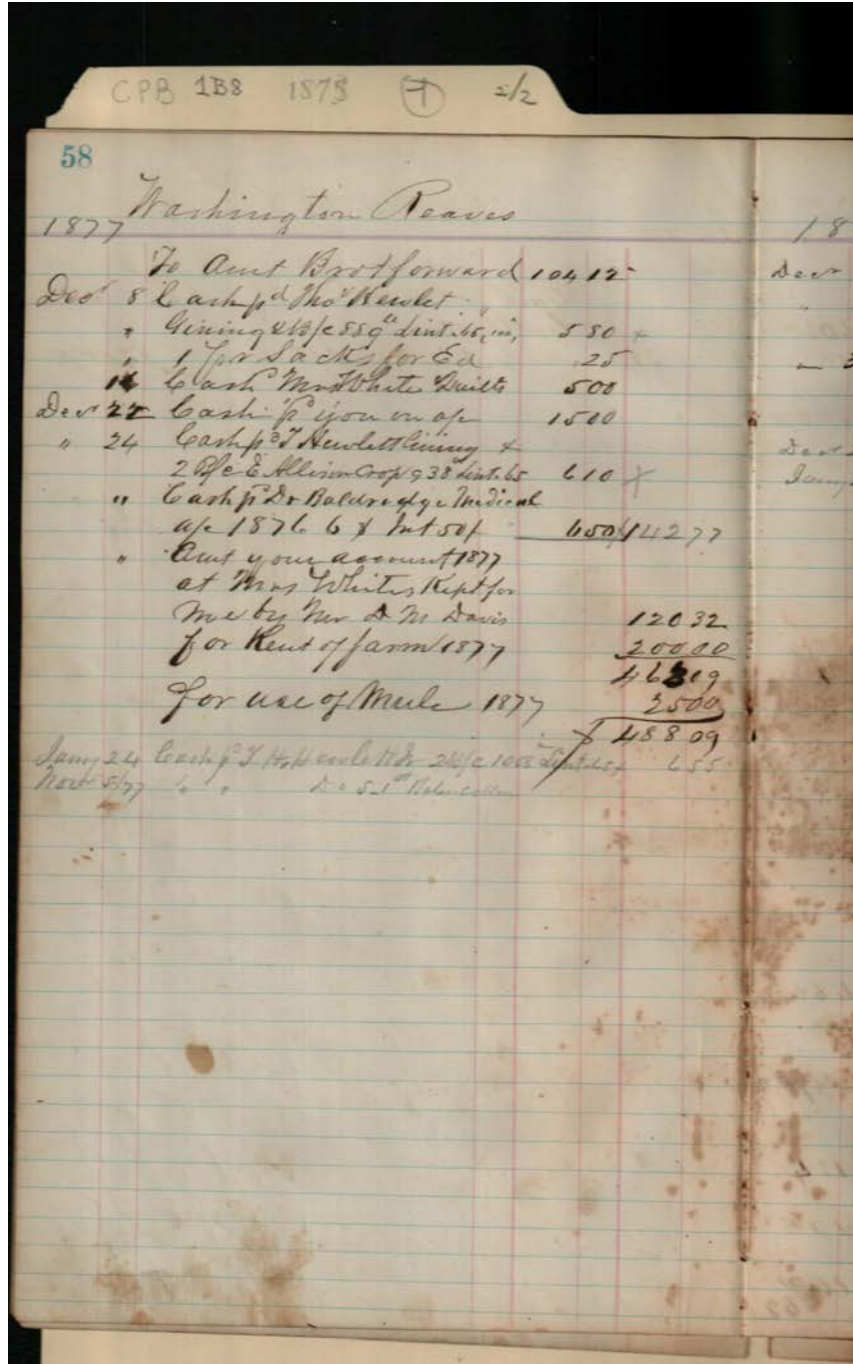 CPB 1B8 1878 1 2/2
58
Washington Reaves
1877
18
To Amt Brot forward 104 12
Decr
Decr 8 Cash pd Thos Hewlet
" Gining 4 B/c 889 lint .65 5 80
" 1 pr Sacks for Ed 25
14 Cash Mrs White Quilts 5 00
Decr 22 Cash pd you on a/c 15 00
" 24 Cash pd T Hewlett Gining &
2 B/c E Allison Crop 938 lint .65 6 10 X
" Cash pd Dr Baldredge Medical
a/c 1876 6 & Int 50/ 6 50 142 77
" Amt your account 1877
at Mrs Whites Kept for
me by Mr D M Davis 120 32
for Rent of farm 1877 200 00
463 09
for use of Mule 1877 25 00
$ 488 09
Jany 24 Cash pd T H Hewlett 2 B/c 1008 Lint .65 6 55
Novr 5/77 " " Do 5 1st Bales cotton